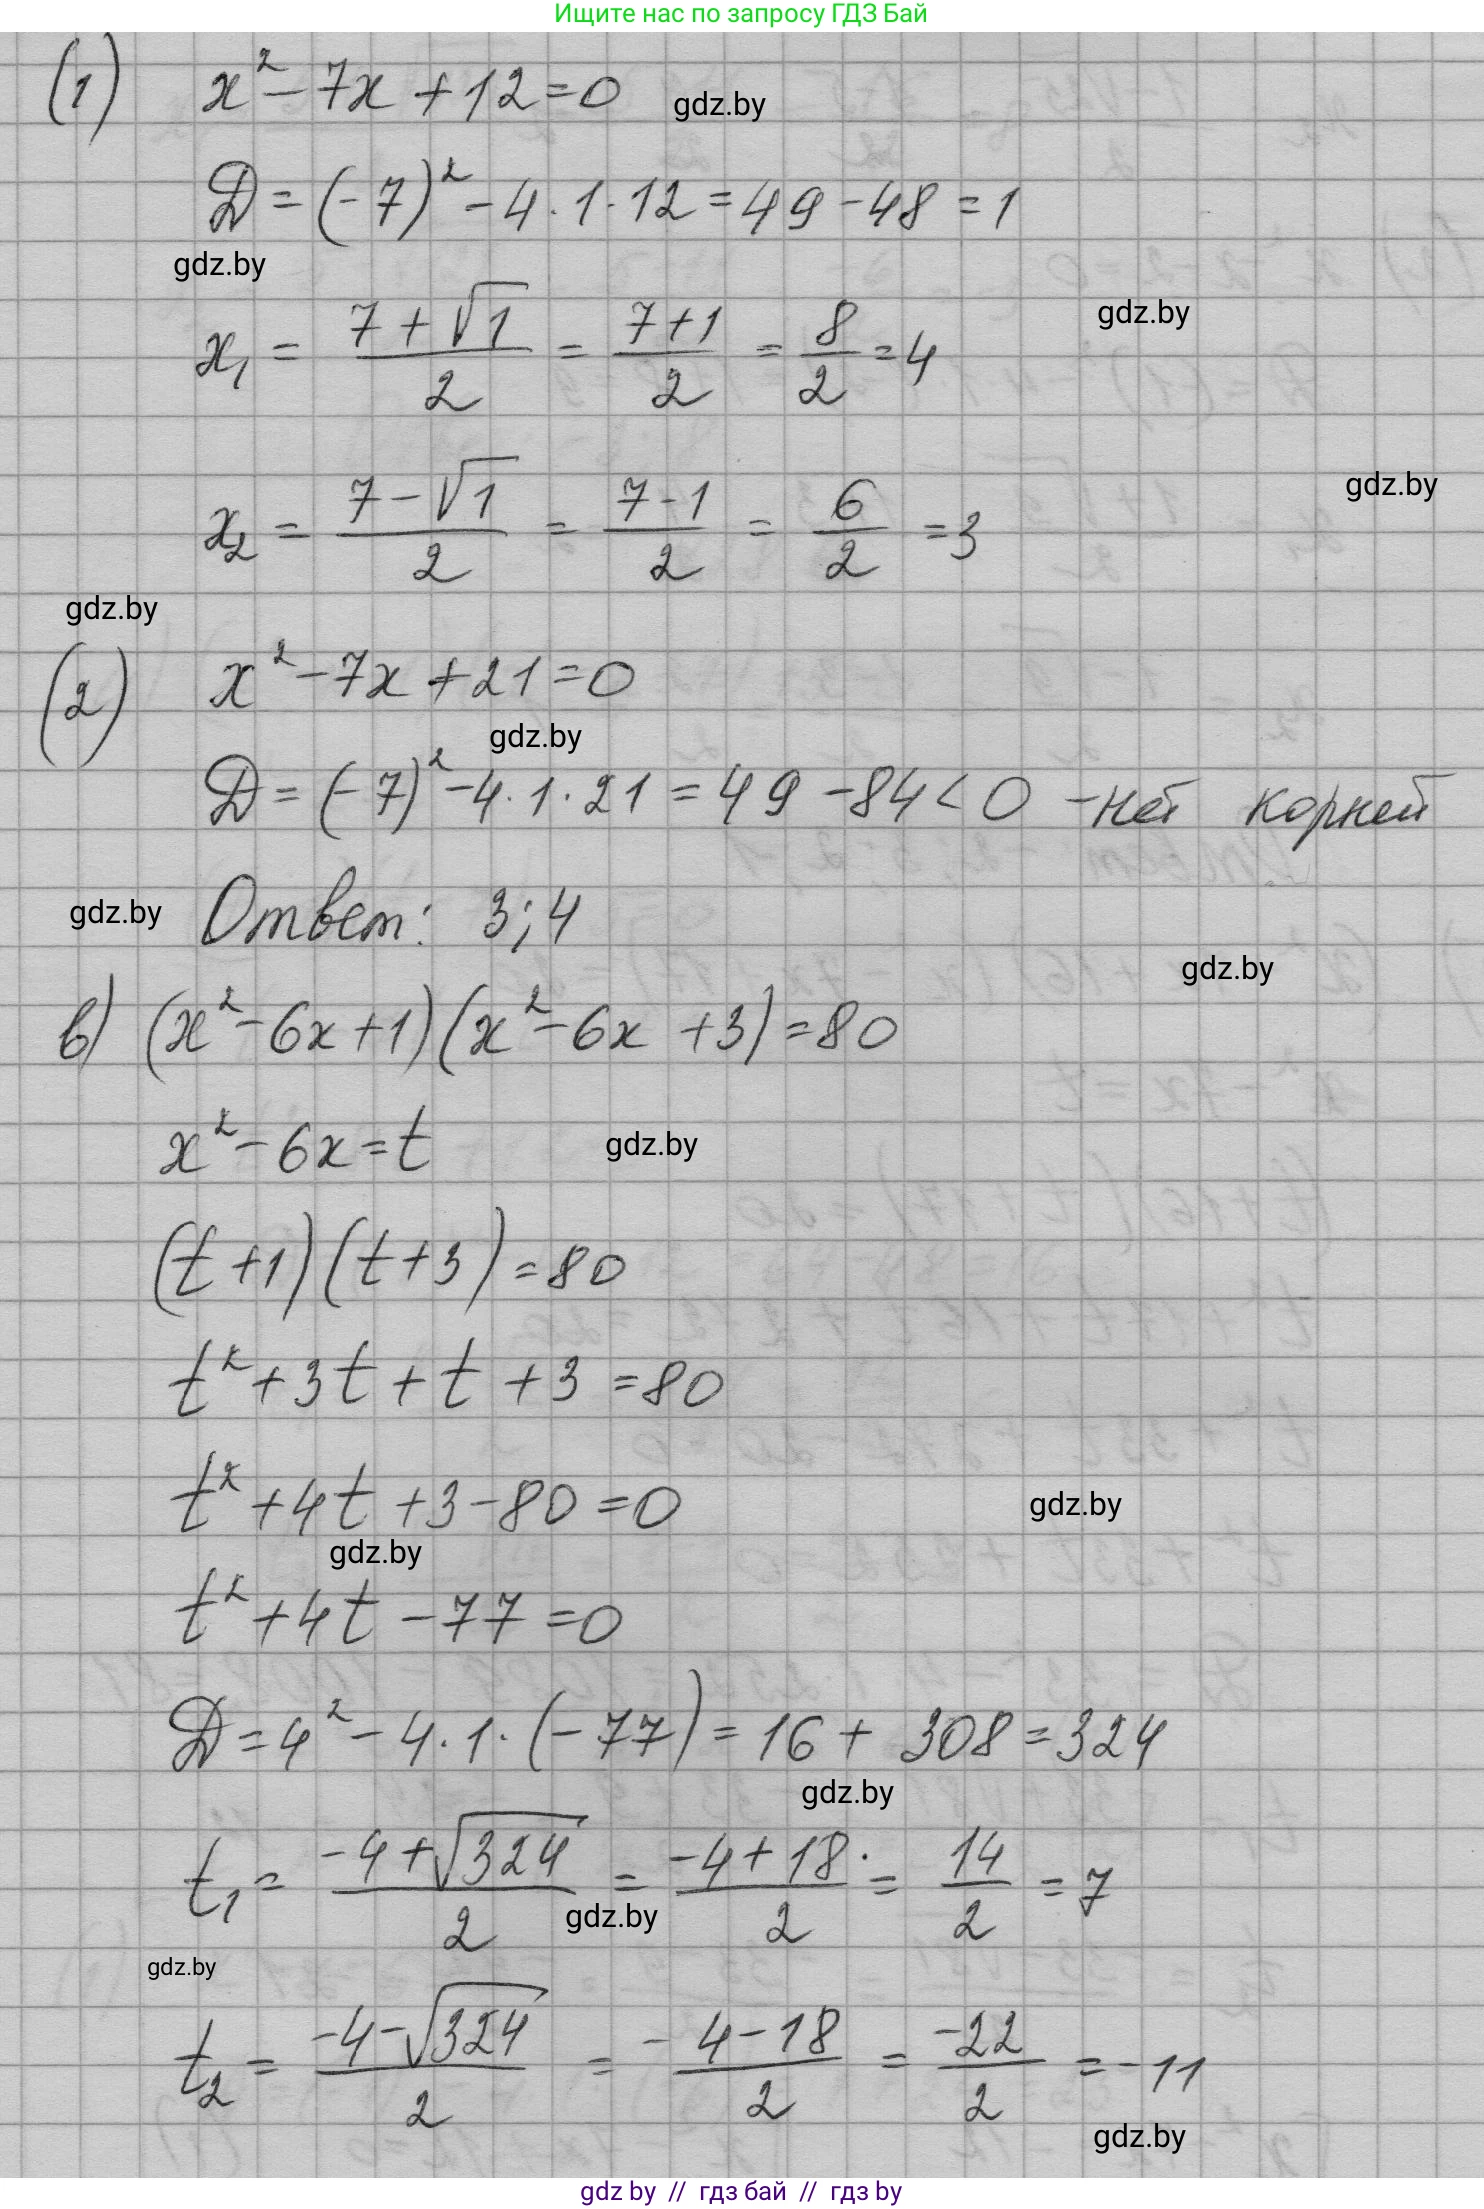 Ищите нас по запросу ГДЗ Бай
(1) x² - 7x + 12 = 0
gdz.by
D = (-7)² - 4 · 1 · 12 = 49 - 48 = 1
gdz.by
gdz.by
x₁ = (7 + √1)/2 = (7+1)/2 = 8/2 = 4
gdz.by
x₂ = (7 - √1)/2 = (7-1)/2 = 6/2 = 3
gdz.by
(2) x² - 7x + 21 = 0
gdz.by
D = (-7)² - 4 · 1 · 21 = 49 - 84 < 0 - нет корней
gdz.by
Ответ: 3; 4
gdz.by
в) (x² - 6x + 1)(x² - 6x + 3) = 80
x² - 6x = t
gdz.by
(t + 1)(t + 3) = 80
t² + 3t + t + 3 = 80
t² + 4t + 3 - 80 = 0
gdz.by
gdz.by
t² + 4t - 77 = 0
D = 4² - 4 · 1 · (-77) = 16 + 308 = 324
gdz.by
t₁ = (-4 + √324)/2 = (-4 + 18)/2 = 14/2 = 7
gdz.by
gdz.by
t₂ = (-4 - √324)/2 = (-4 - 18)/2 = -22/2 = -11
gdz.by
gdz by // гдз бай // гдз by